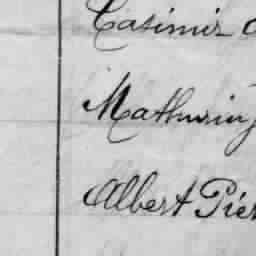 Casimir
Mathurin
Albert Pier